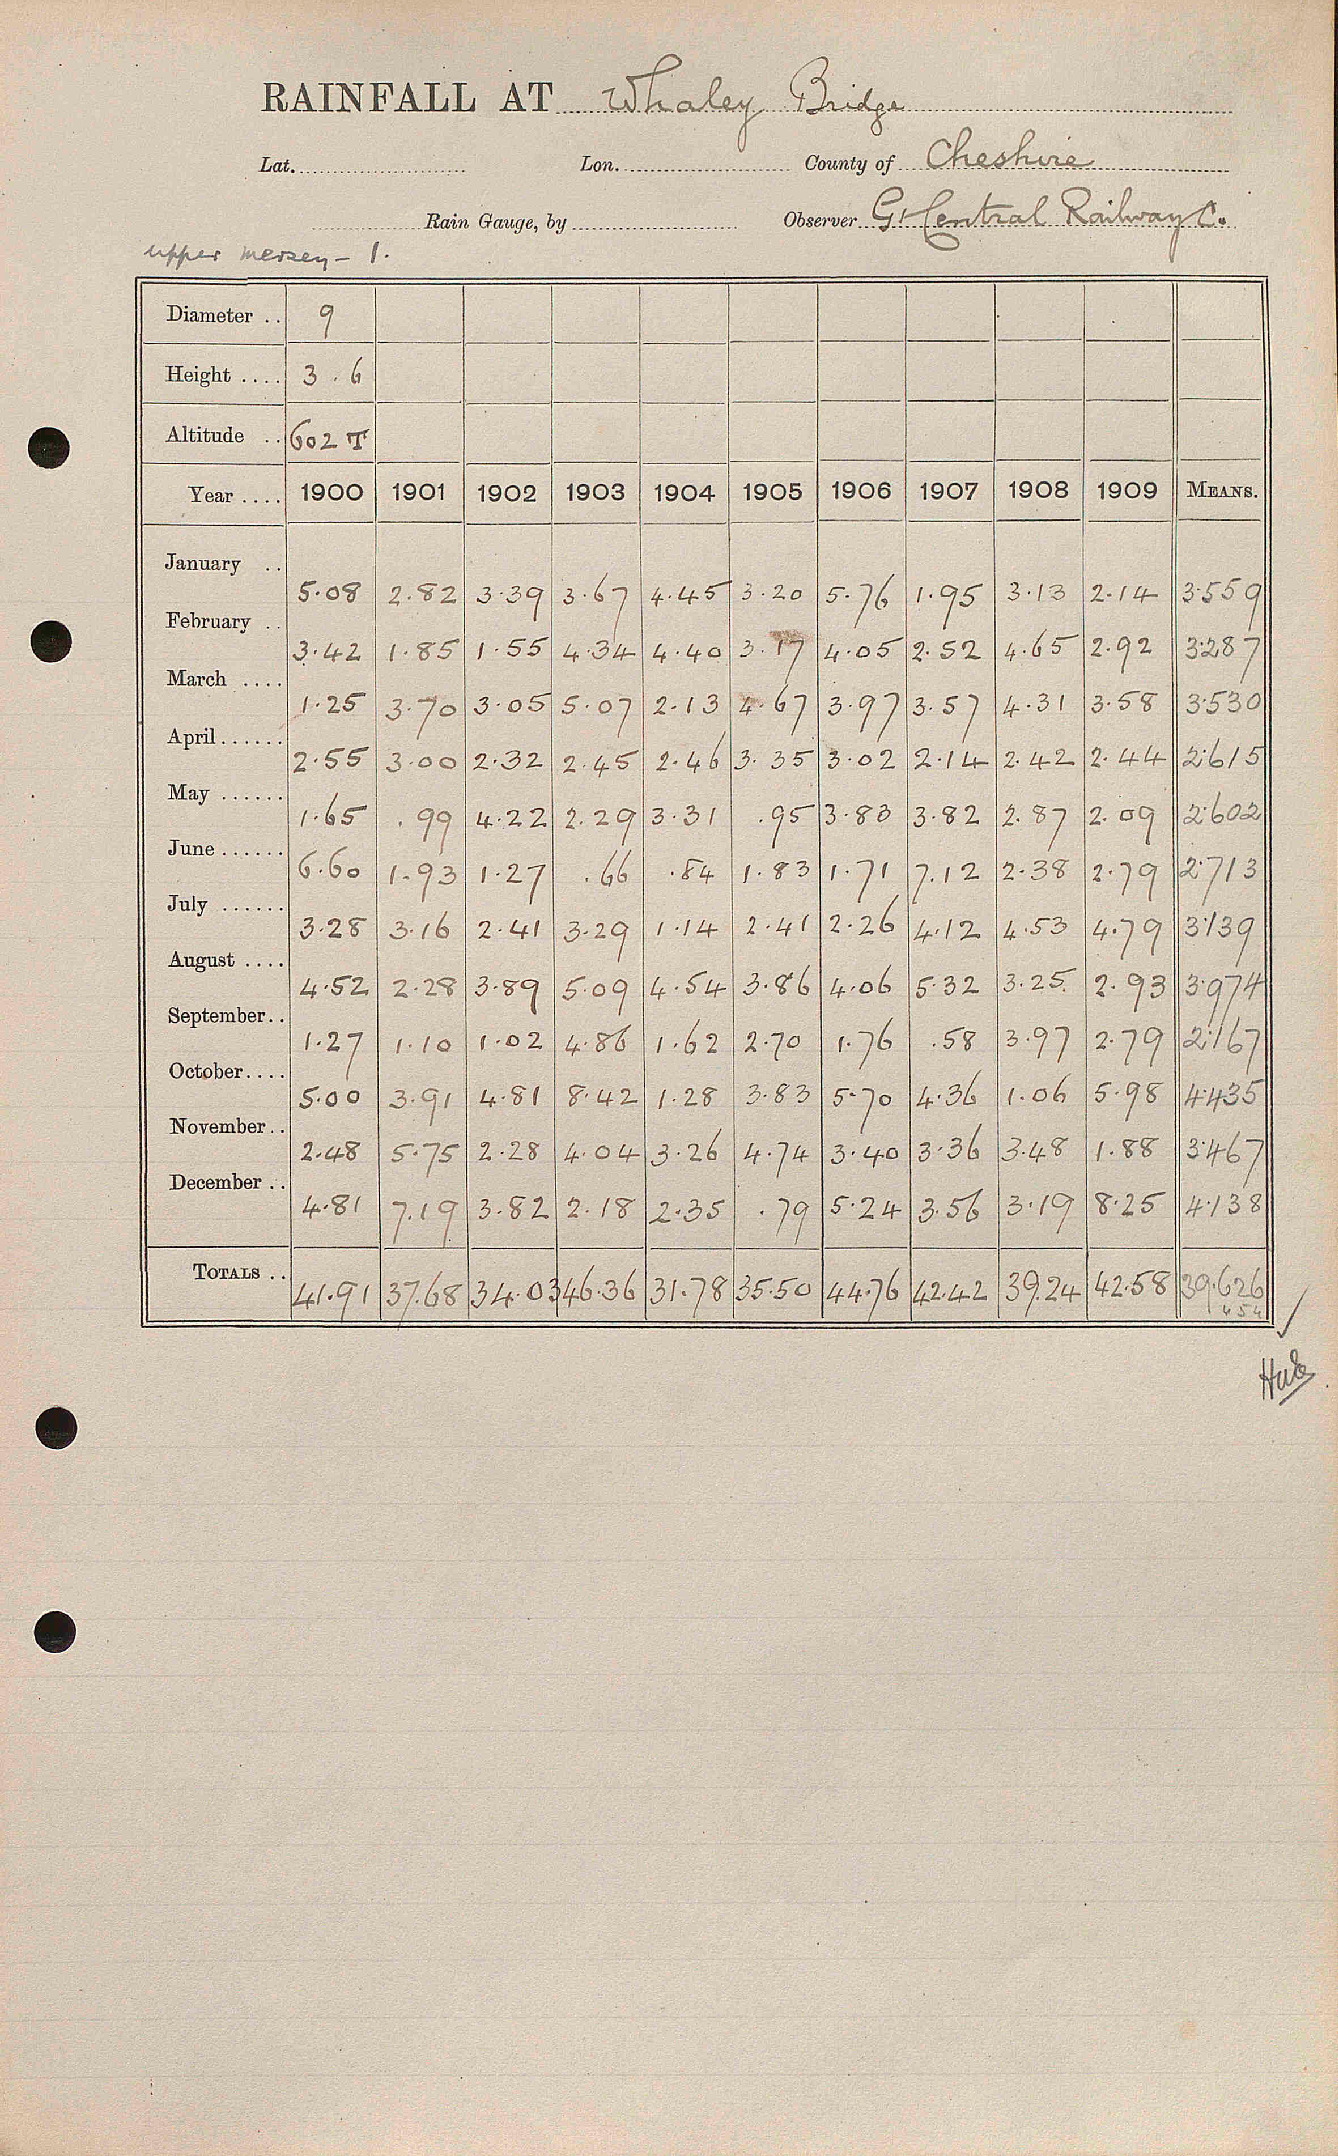 RAINFALL AT Whaley Bridge
Lat. Lon. County of Cheshire
Rain Gauge, by Observer Gt Central Railway Co.
upper mersey - 1.
Diameter .. 9
Height .... 3.6
Altitude .. 602 T
Year .... 1900 1901 1902 1903 1904 1905 1906 1907 1908 1909 MEANS.
January .. 5.08 2.82 3.39 3.67 4.45 3.20 5.76 1.95 3.13 2.14 3.559
February .. 3.42 1.85 1.55 4.34 4.40 3.17 4.05 2.52 4.65 2.92 3.287
March .... 1.25 3.70 3.05 5.07 2.13 4.67 3.97 3.57 4.31 3.58 3.530
April ...... 2.55 3.00 2.32 2.45 2.46 3.35 3.02 2.14 2.42 2.44 2.615
May ...... 1.65 .99 4.22 2.29 3.31 .95 3.83 3.82 2.87 2.09 2.602
June ...... 6.60 1.93 1.27 .66 .84 1.83 1.71 7.12 2.38 2.79 2.713
July ...... 3.28 3.16 2.41 3.29 1.14 2.41 2.26 4.12 4.53 4.79 3.139
August .... 4.52 2.28 3.89 5.09 4.54 3.86 4.06 5.32 3.25 2.93 3.974
September .. 1.27 1.10 1.02 4.86 1.62 2.70 1.76 .58 3.97 2.79 2.167
October .... 5.00 3.91 4.81 8.42 1.28 3.83 5.70 4.36 1.06 5.98 4.435
November .. 2.48 5.75 2.28 4.04 3.26 4.74 3.40 3.36 3.48 1.88 3.467
December .. 4.81 7.19 3.82 2.18 2.35 .79 5.24 3.56 3.19 8.25 4.138
TOTALS .. 41.91 37.68 34.03 46.36 31.78 35.50 44.76 42.42 39.24 42.58 39.626
454